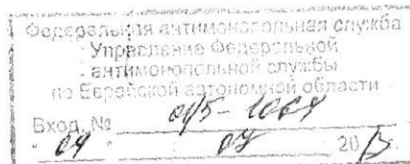 Федеральная антимонопольная служба
Управление Федеральной
антимонопольной службы
по Еврейской автономной области
Вход. №
" 04 " 07 20